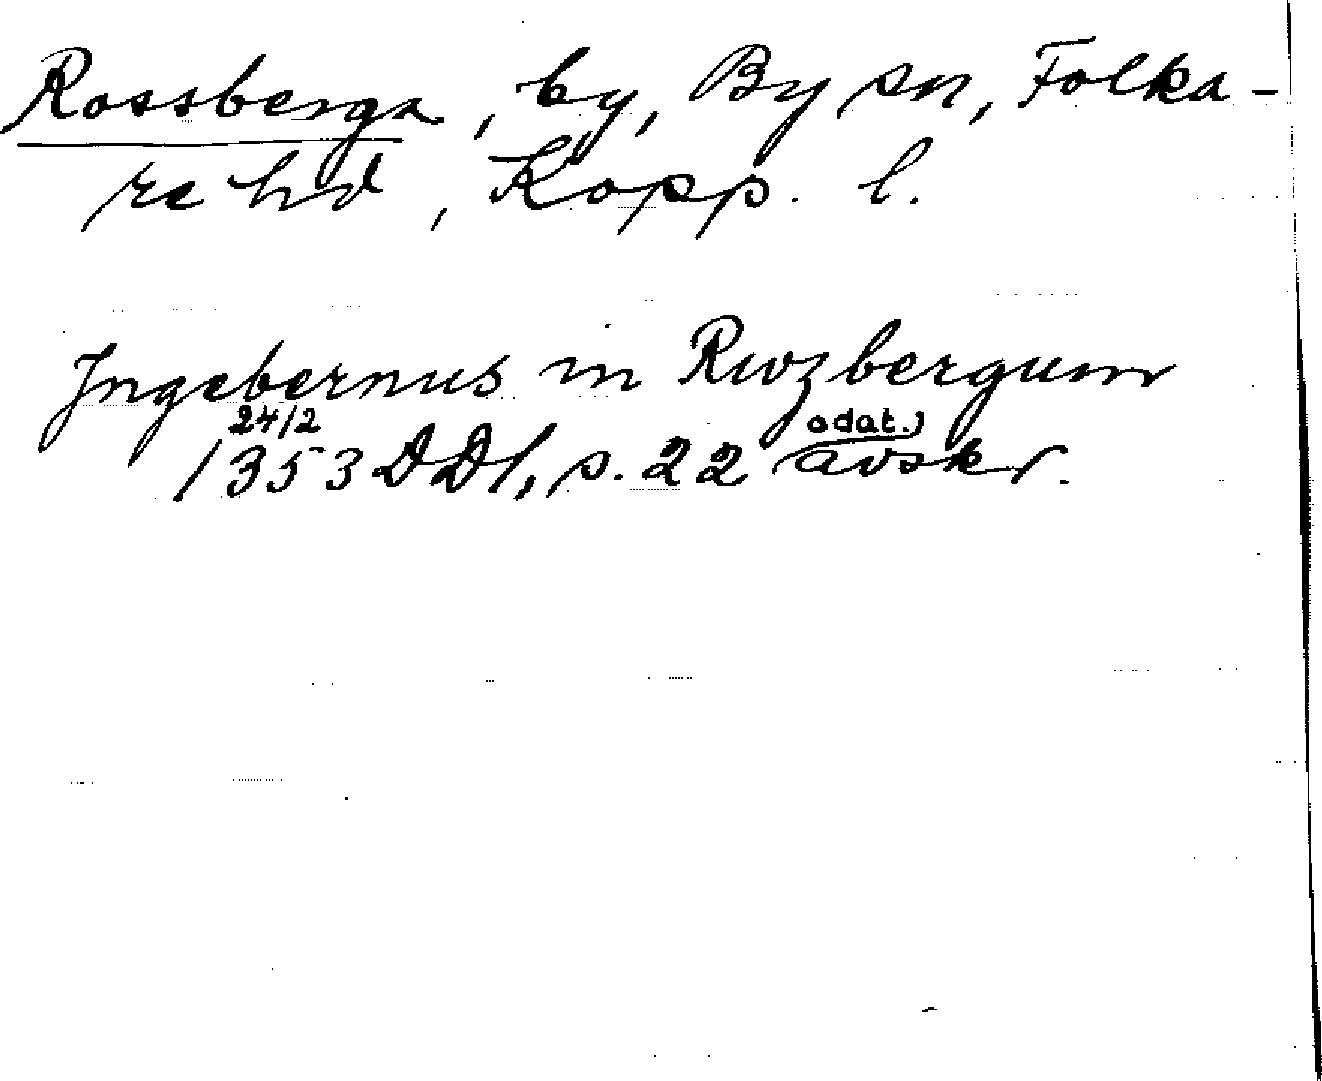 Rossberga, by, By sn, Folka-
re hd, Kopp. l.
Ingebernus in Rwzbergum
24/2 odat.
1353 DD1, s. 22 avskr.